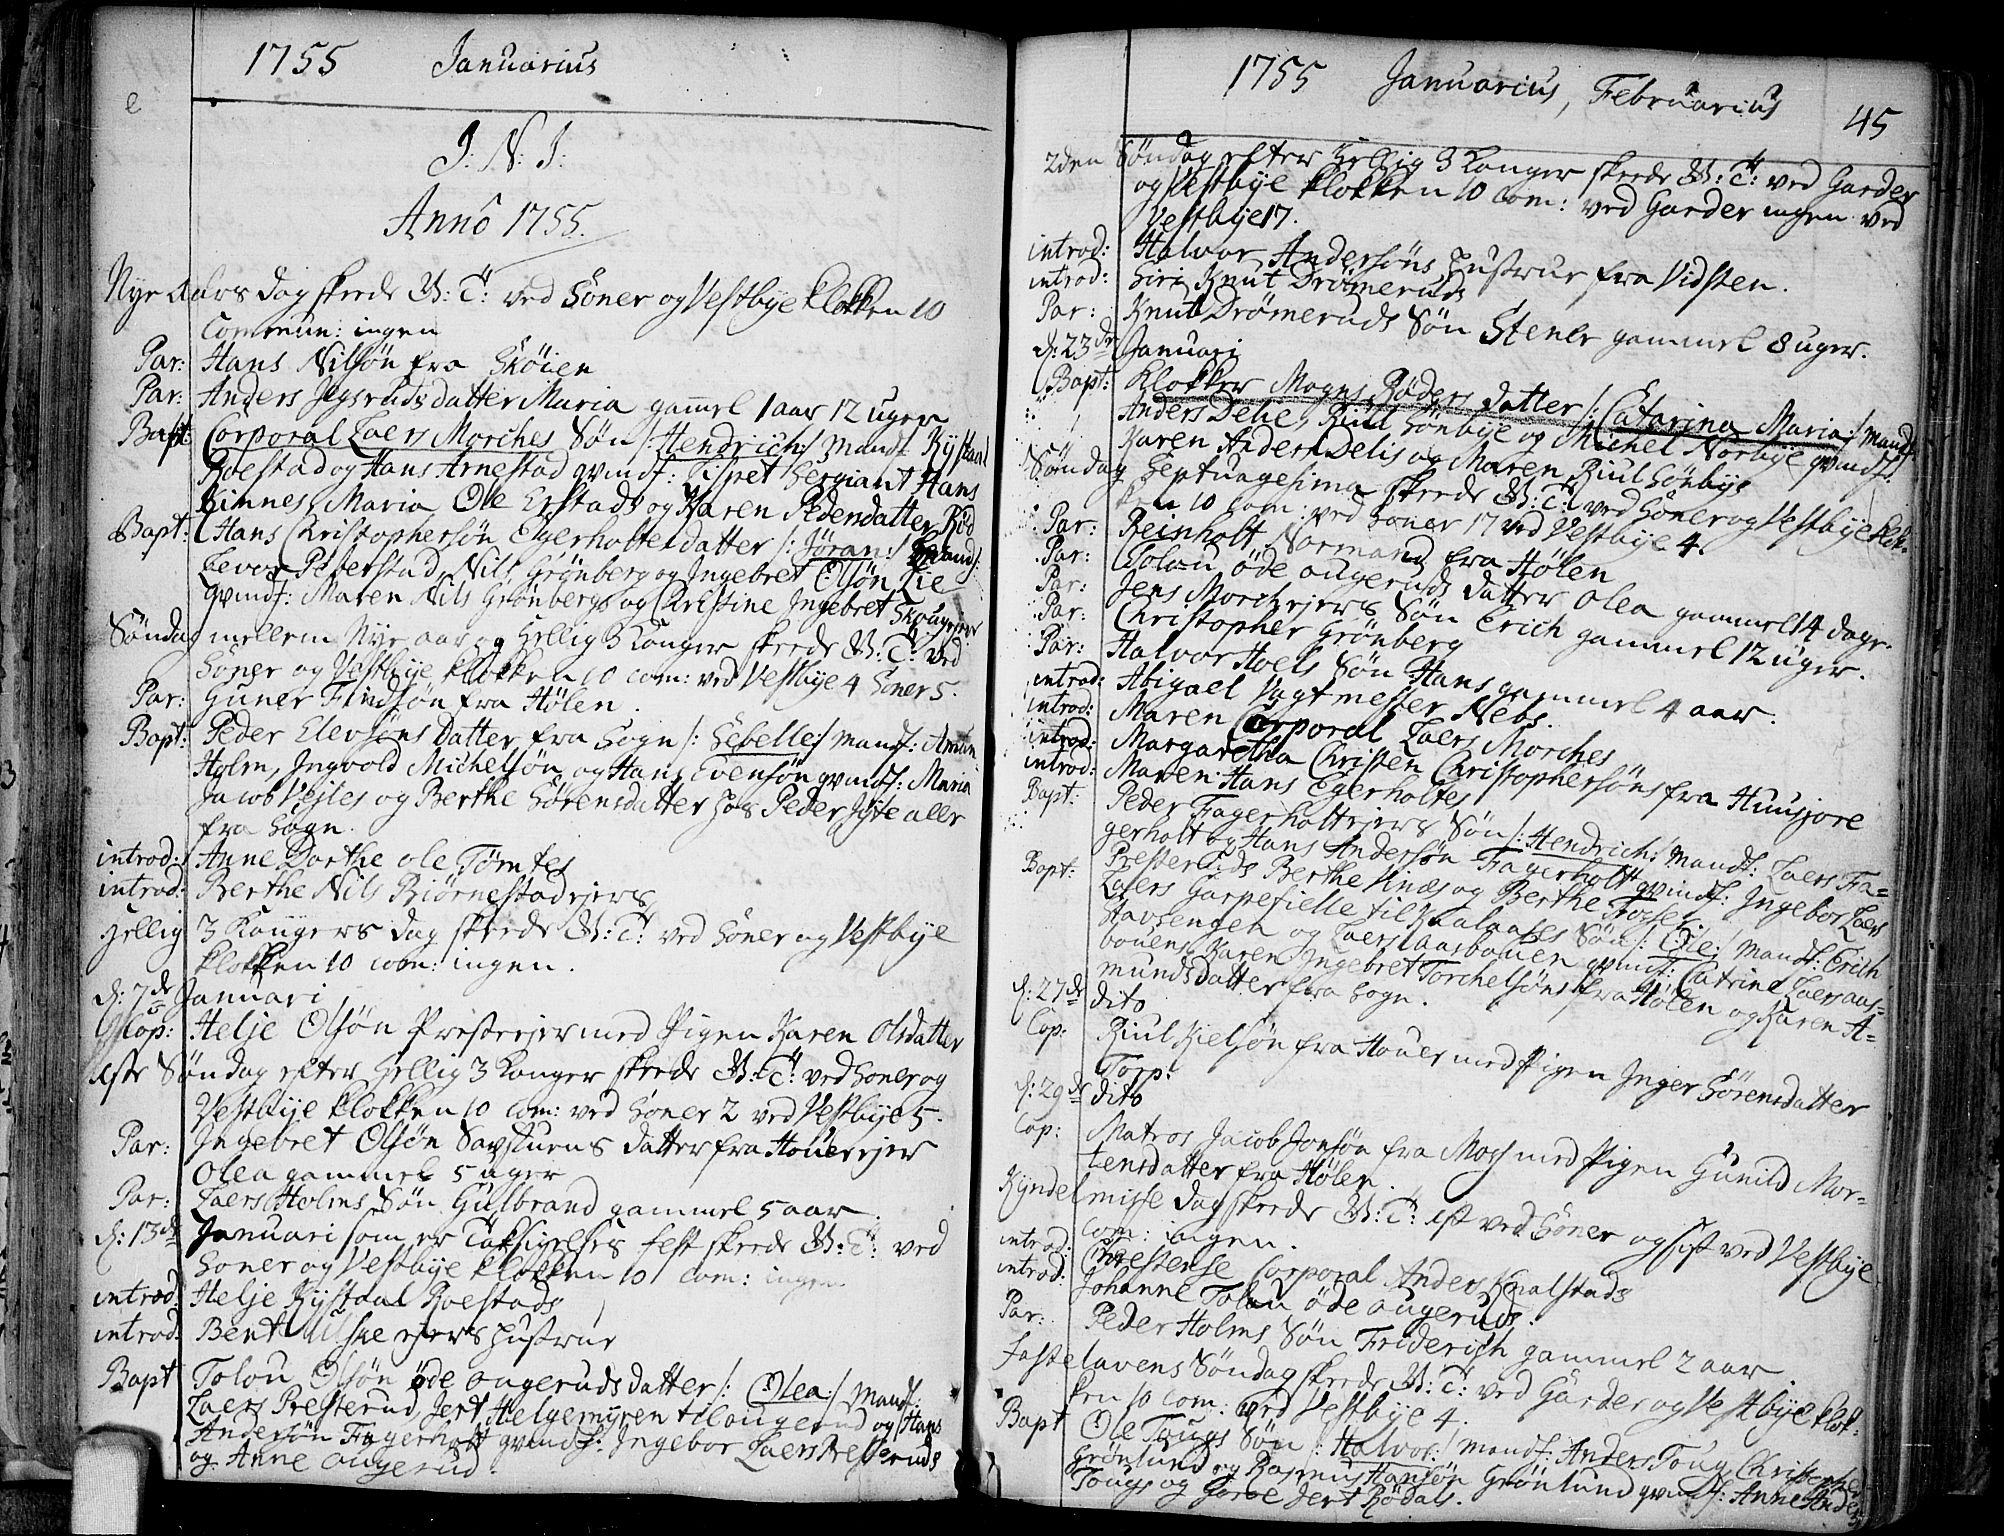 1755 Januarius
e
J: N: J:
Annô 1755.
Nye Aars dag skede G: T: ved Soner og Vestbye klokken 10
Commun: ingen
Par: Hans Nilsøn fra Skøien
Par: Anders datter Maria gammel 1 aar 12 uger
Bapt: Corporal Laers Morches Søn /: Hendrich :/ mandf: Rystaal
Roestad og Hans Arnestad qvindf: Lispet Sergiant Hans
Rimnes, Maria Ole Erstads og Karen Pedersdatter Rød
Bapt: Hans Christophersøn Egerholtes datter /: Jøran :/ mandf:
Levor Peterstad, Nils Grønberg og Ingebret Olsøn Lie
qvindf: Maren Nils Grønbergs og Christine Ingebret
Søndag mellem Nye aar og Hellig 3 Konger skede G: T: ved
Soner og Vestbye klokken 10 com: ved Vestbye 4 Soner 5.
Par: Guner Findsøn fra Hølen.
Bapt: Peder Elevsøns datter fra Sogn /: Sebelle :/ mandf: Amun
Holm, Ingvold Michelsøn og Hans Evensøn qvindf: Maria
Jacob Vejles og Berthe Sørensdatter hos Peder alle
fra Sogn.
introd: Anne Dorthe ole Tømtes
introd: Berthe Nils Biørnestadejers
Hellig 3 Kongers dag skede G: T: ved Soner og Vestbye
klokken 10 com: ingen.
d: 7de Januari
Cop: Helje Olsøn Presteejer med Pigen Karen Olsdatter
1ste Søndag efter Hellig 3 Konger skede G: T: ved Soner og
Vestbye klokken 10 com: ved Soner 2 ved Vestbye 5.
Par: Ingebret Olsøn Savstuens datter fra Houerejer
Olea gammel 5 uger
Par: Laers Holms Søn Gulbrand gammel 5 aar.
d: 13de Januari som er Taksigelses fest skede G: T: ved
Soner og Vestbye klokken 10 com: ingen
introd: Helje Rystaal Roestads
introd: Bent ejers hustrue
Bapt Tolou Olsøn øde ougeruds datter /: Olea :/ mandf:
Laers Presterud, Jert Helgemyren til ougerud og Hans
Andersøn Fagerholt qvindf: Ingebor Laers Presteruds
og Anne ougerud.
1755 Januarius, Februarius
45
2den Søndag efter Hellig 3 Konger skede G: T: ved Garder
og Vestbye klokken 10 Com: ved Garder ingen ved
Vestbye 17.
introd: Halvor Andersøns hustrue fra Vidsten.
introd: Siri Knut Drømeruds
Par: Knut Drømeruds Søn Stener gammel 8 uger.
d: 23de Januari
Bapt: Klokker Mogns Røders datter /: Catarina Maria :/ mandf:
Anders Delie, Riul Sønbye og Michel Norbye qvindf:
Karen Anders Delis og Maren Riul Sønbye
Søndag Septuagesima skede G: T: ved Soner og Vestbye klok-
ken 10 com: ved Soner 17 ved Vestbye 4.
Par: Reinholt Normand fra Hølen
Par: Tolou øde ougeruds datter olea gammel 14 dage.
Par: Jens Morchejers Søn Erich gammel 12 uger.
Par: Christopher Grønberg
Par: Halvor Hoels Søn Hans gammel 4 aar.
introd: Abigael Vagtmester Nebs.
introd: Maren Corporal Laers Morches
introd: Margaretha Christen Christophersøns fra Huusjore
introd: Maren Hans Egerholtes
Bapt: Peder Fagerholtejers Søn /: Hendrich :/ mandf: Laers Fa-
gerholt og Hans Andersøn Fagerholt qvindf: Ingebor Laers
Presteruds Berthe Vinæs og Berthe
Bapt: Laers Garpefielle til Kaalaases Søn /: Ole :/ mandf: Erich
Stavsengen og Laers aasbouen qvindf: Catrine Laers aas-
bouens, Karen Ingebret Torchelsøns fra Hølen og Karen A-
mundsdatter fra Sogn.
d: 27de dito
Cop: Riul Kielsøn fra Houer med Pigen Inger Sørensdatter
Torp.
d: 29de dito
Cop: Matros Jacob Jonsøn fra Moss med Pigen Gunild Mor-
tensdatter fra Hølen.
Kyndelmisse dag skede G: T: est ved Soner og sist ved Vestbye
com: ingen.
introd: Chrestense Corporal Anders Kaalstads
introd: Johanne Tolou øde ougeruds.
Par: Peder Holms Søn Friderich gammel 2 aar
Fastelavens Søndag skede G: T: ved Garder og Vestbye klok-
ken 10 com: ved Vestbye 4.
Bapt Ole Tougs Søn /: Halvor :/ mandf: Anders Toug, Christopher
Grønlund og Rasmus Hansøn Grønlund qvindf: Anne Anders
Tougs og Jert Rødals.